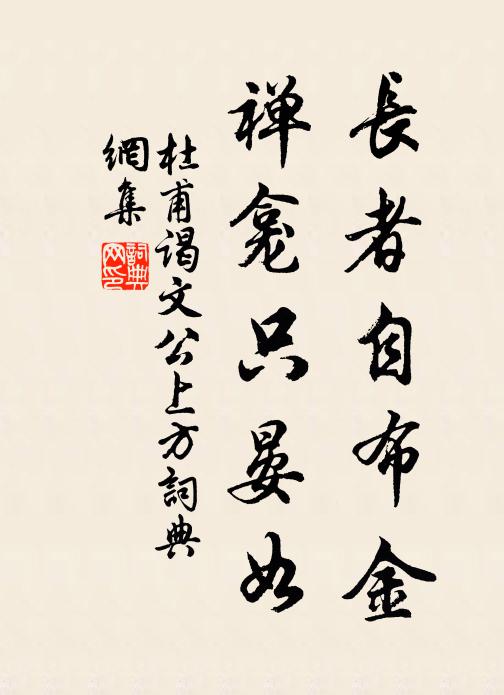 長者自布金
禅龛只晏如
杜甫謁文公上方詞典
網集
詞典网印